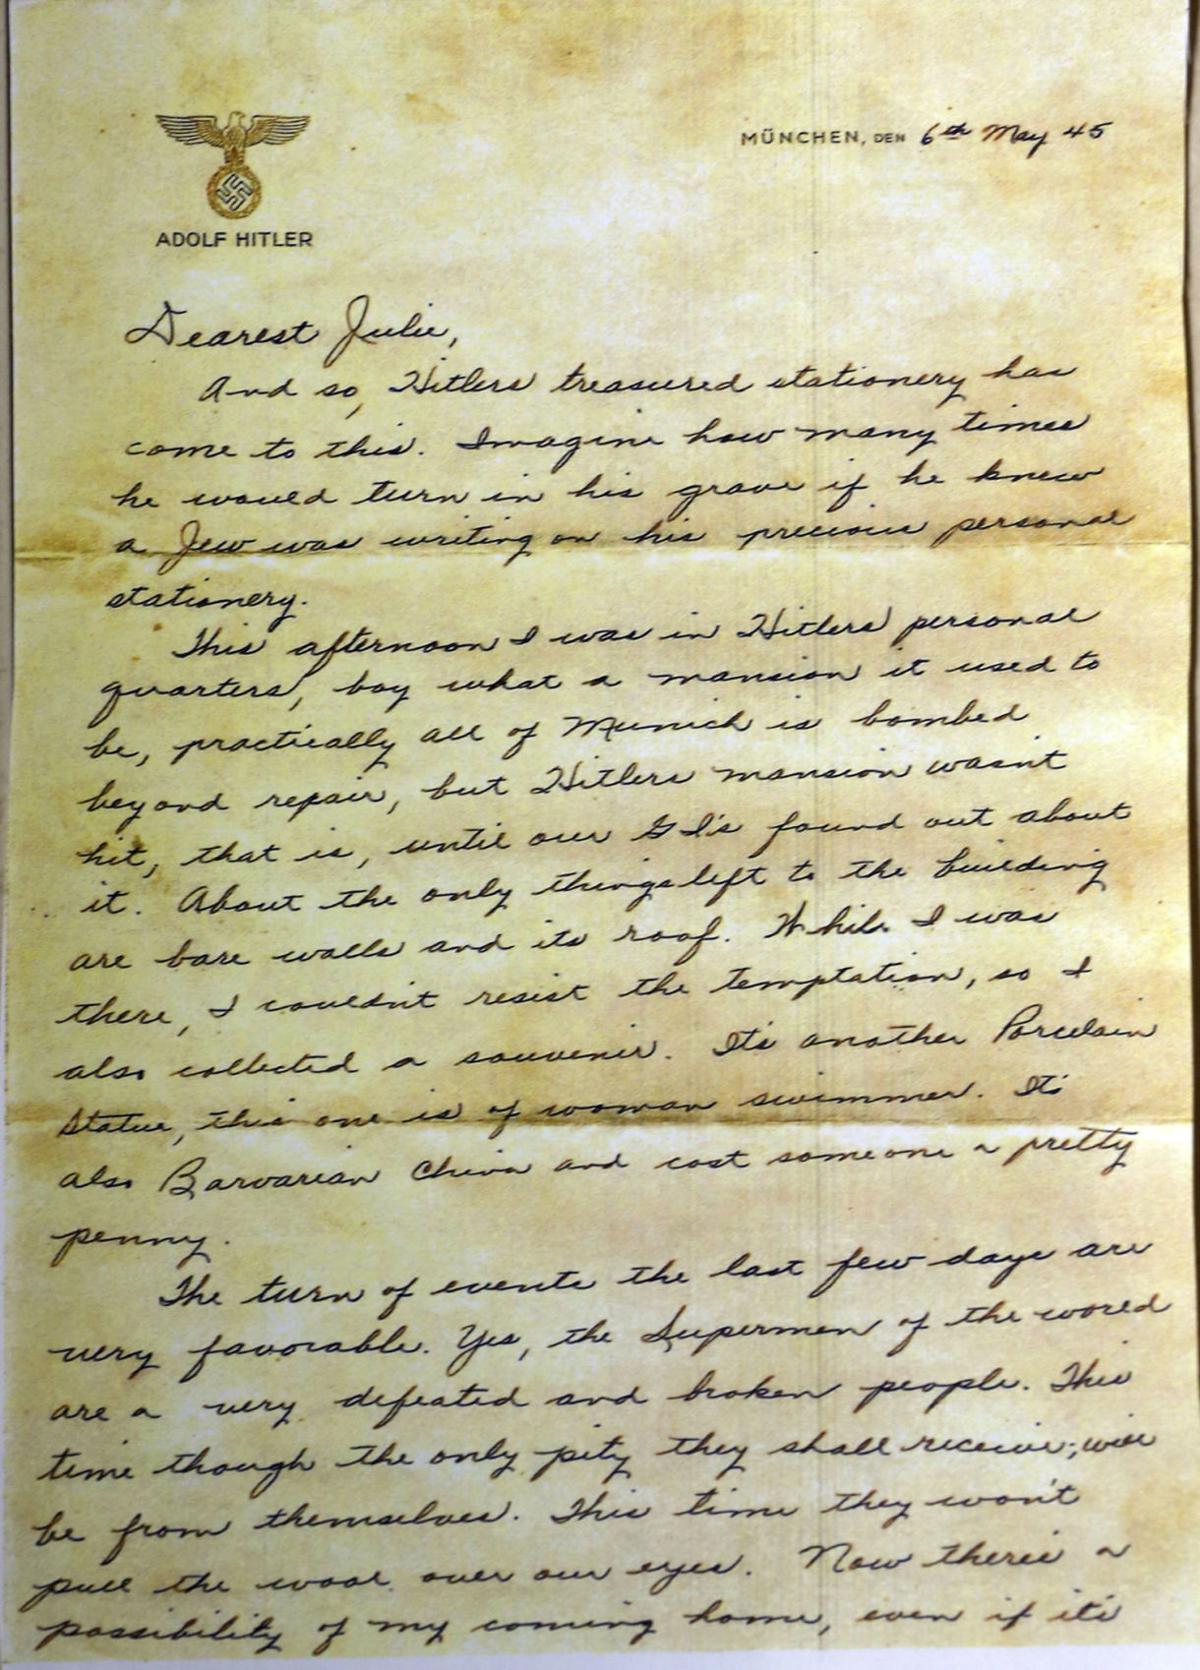 MÜNCHEN, DEN 6th May 45
ADOLF HITLER
Dearest Julie,
And so, Hitlers treasured stationery has
come to this. Imagine how many times
he would turn in his grave if he knew
a Jew was writing on his precious personal
stationery.
This afternoon I was in Hitlers personal
quarters, boy what a mansion it used to
be, practically all of Munich is bombed
beyond repair, but Hitlers mansion wasn't
hit, that is, until our GI's found out about
it. About the only things left to the building
are bare walls and its roof. While I was
there, I couldn't resist the temptation, so I
also collected a souvenir. It's another Porcelain
Statue, this one is of woman swimmer. It's
also Barvarian China and cost someone a pretty
penny.
The turn of events the last few days are
very favorable. Yes, the Supermen of the world
are a very defeated and broken people. This
time though the only pity they shall receive, will
be from themselves. This time they won't
pull the wool over our eyes. Now there's a
possibility of my coming home, even if it's